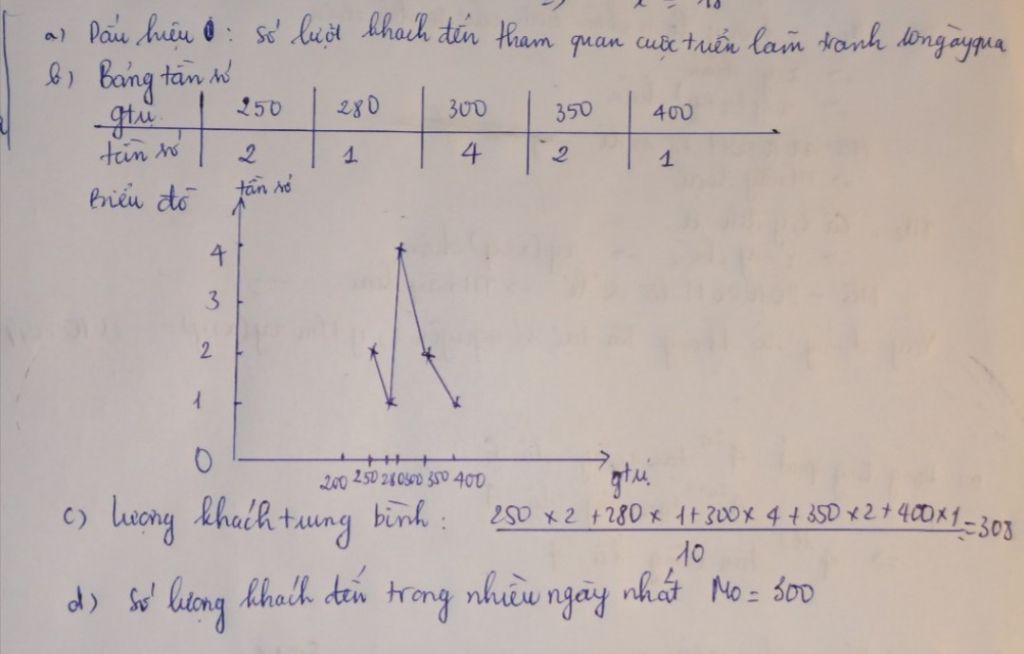 => x = 18
a) Dấu hiệu : số lượt khách đến tham quan cuộc triển lãm tranh 10 ngày qua
b) Bảng tần số
gtrị 250 280 300 350 400
tần số 2 1 4 2 1
Biểu đồ
tần số
4
3
2
1
0
200 250 280 300 350 400
gtrị
c) lượng khách trung bình : 250 × 2 + 280 × 1 + 300 × 4 + 350 × 2 + 400 × 1 = 308
10
d) số lượng khách đến trong nhiều ngày nhất Mo = 300